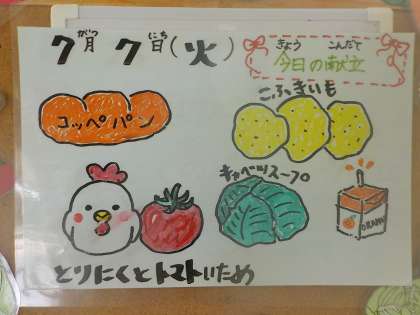 がつ にち
7月7日(火)
きょう こんだて
今日の献立
こふきいも
コッペパン
キャベツスープ
ORANGE
とりにくとトマトいため